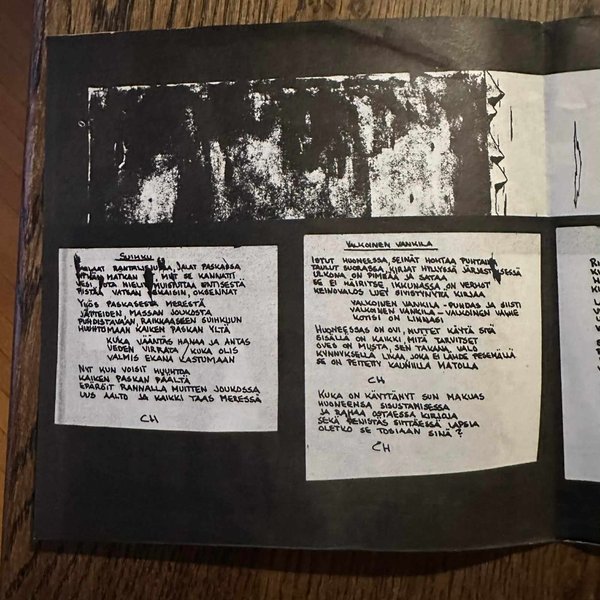 SUIHKU
JALAT PASKASSA
PITKÄN MATKAN MUT SE KANNATTI
VESI JOTA MIELI MUISTUTAA ENTISESTÄ
OKSENNAT
YLÖS PASKASESTA MERESTÄ
JÄTTEIDEN MASSAN JOUKOSTA
PUHDISTAVAAN, RAIKKAASEEN SUIHKUUN
HUUHTOMAAN KAIKEN PASKAN YLTÄ
KUKA VÄÄNTÄS HANAA JA ANTAS
VEDEN VIRRATA / KUKA OLIS
VALMIS EKANA KASTUMAAN
NYT KUN VOISIT HUUHTOA
KAIKEN PASKAN PÄÄLTÄ
EPÄRÖIT RANNALLA MUITTEN JOUKOSSA
UUS AALTO JA KAIKKI TAAS MERESSÄ
CH
VALKOINEN VANKILA
ISTUT HUONEESSA, SEINÄT HOHTAA PUHTAINA
TAULUT SUORASSA, KIRJAT HYLLYSSÄ JÄRJESTYKSESSÄ
ULKONA ON PIMEÄÄ JA SATAA
SE EI HÄIRITSE, IKKUNASSA ON VERHOT
KEINOVALOS LUET SIVISTYNYTTÄ KIRJAA
VALKOINEN VANKILA - PUHDAS JA SIISTI
VALKOINEN VANKILA - VALKOINEN VAIHE
KOTISI ON LINNASI
HUONEESSAS ON OVI, MUTTET KÄYTÄ SITÄ
SISÄLLÄ ON KAIKKI MITÄ TARVITSET
OVES ON MUSTA, SEN TAKANA VALO
KYNNYKSELLÄ LIKAA, JOKA EI LÄHDE PESEMÄLLÄ
SE ON PEITETTY KAUNIILLA MATOLLA
CH
KUKA ON KÄYTTÄNYT SUN MAKUAS
HUONEENSA SISUSTAMISESSA
JA RAHAA OSTAESSA KIRJOJA
SEKÄ PENISTAS SIITTÄESSÄ LAPSIA
OLETKO SE TOSIAAN SINÄ?
CH